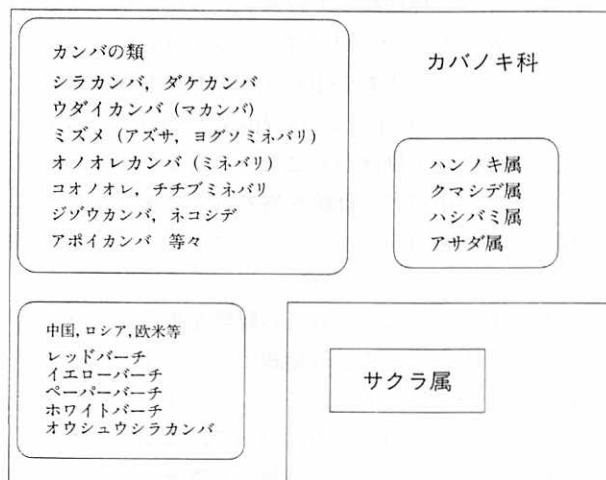 カンバの類
シラカンバ，ダケカンバ
ウダイカンバ（マカンバ）
ミズメ（アズサ，ヨグソミネバリ）
オノオレカンバ（ミネバリ）
コオノオレ，チチブミネバリ
ジゾウカンバ，ネコシデ
アポイカンバ　等々
カバノキ科
ハンノキ属
クマシデ属
ハシバミ属
アサダ属
中国，ロシア，欧米等
レッドバーチ
イエローバーチ
ペーパーバーチ
ホワイトバーチ
オウシュウシラカンバ
サクラ属